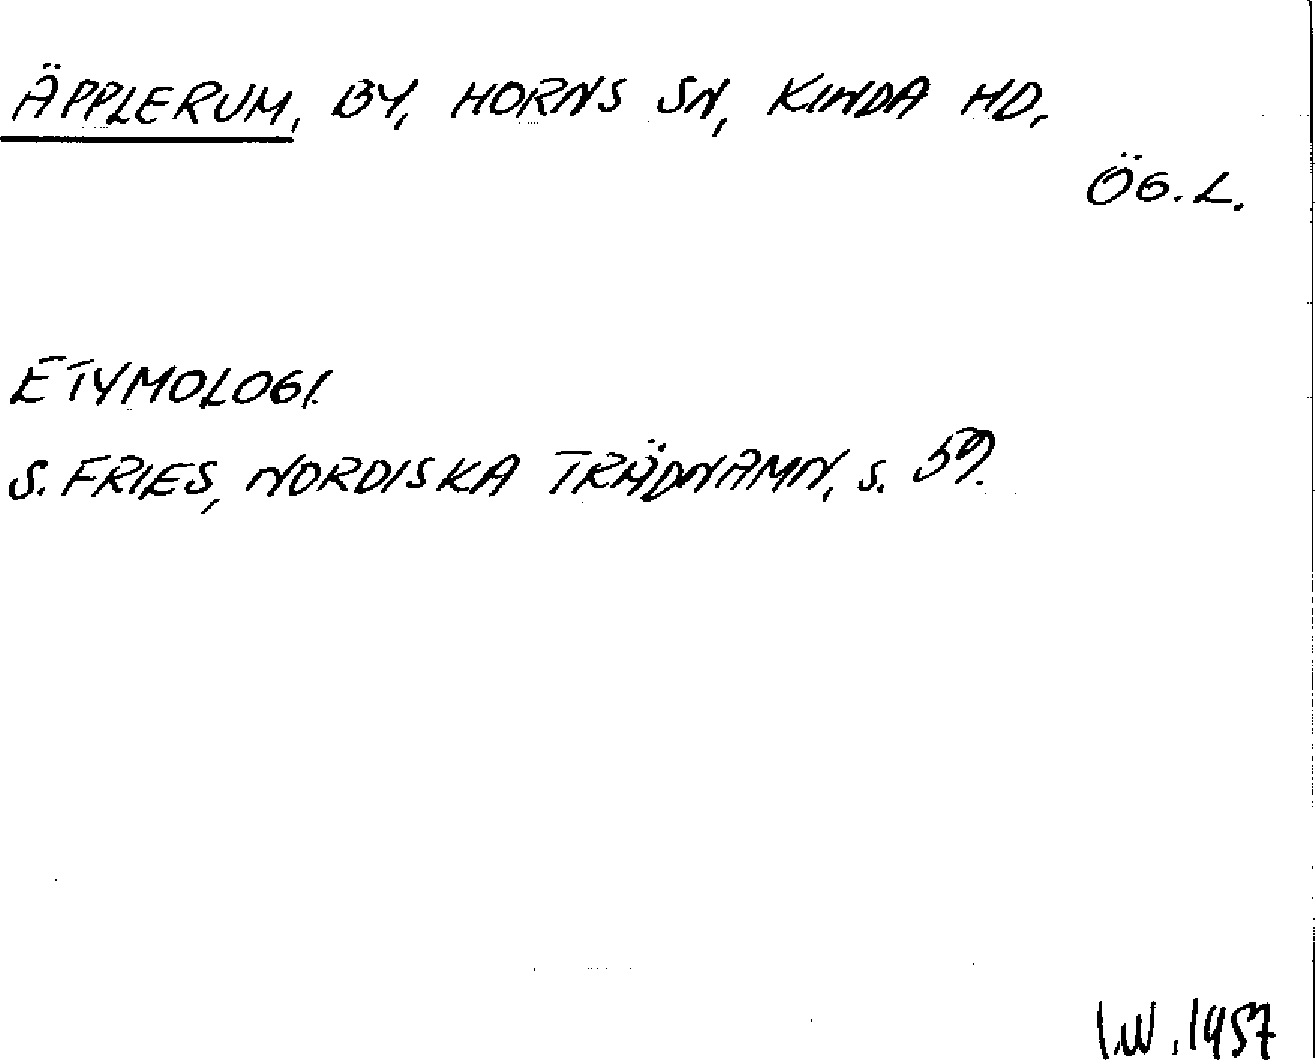 ÄPPLERUM, BY, HORNS SN, KINDA HD,
ÖG. L.
ETYMOLOGI.
S. FRIES, NORDISKA TRÄDNAMN, s. 59.
I.W. 1957